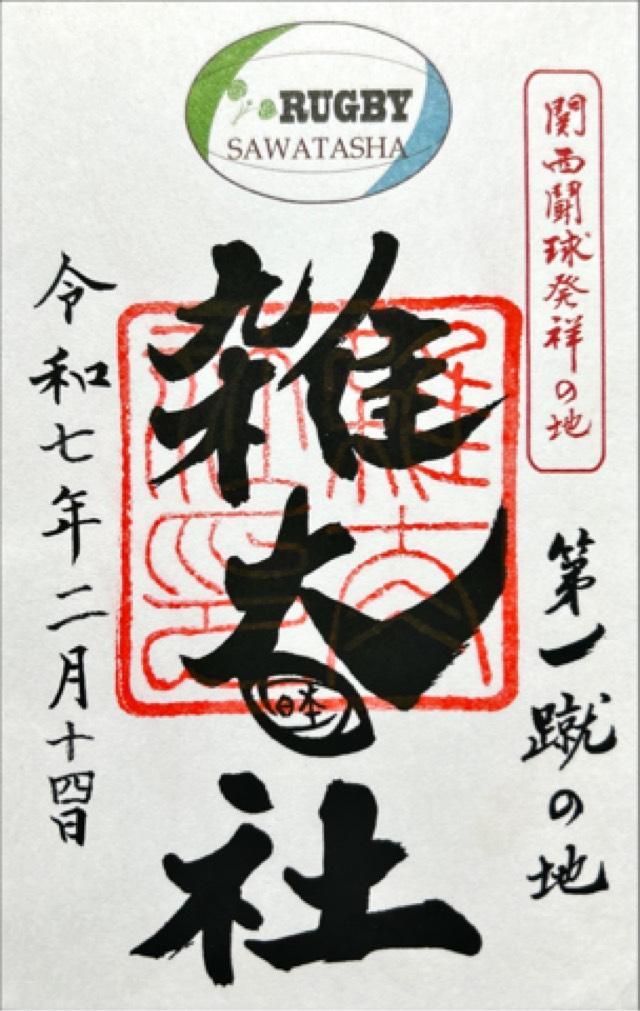 RUGBY
SAWATASHA
関西闘球発祥の地
第一蹴の地
雑太社
令和七年二月十四日